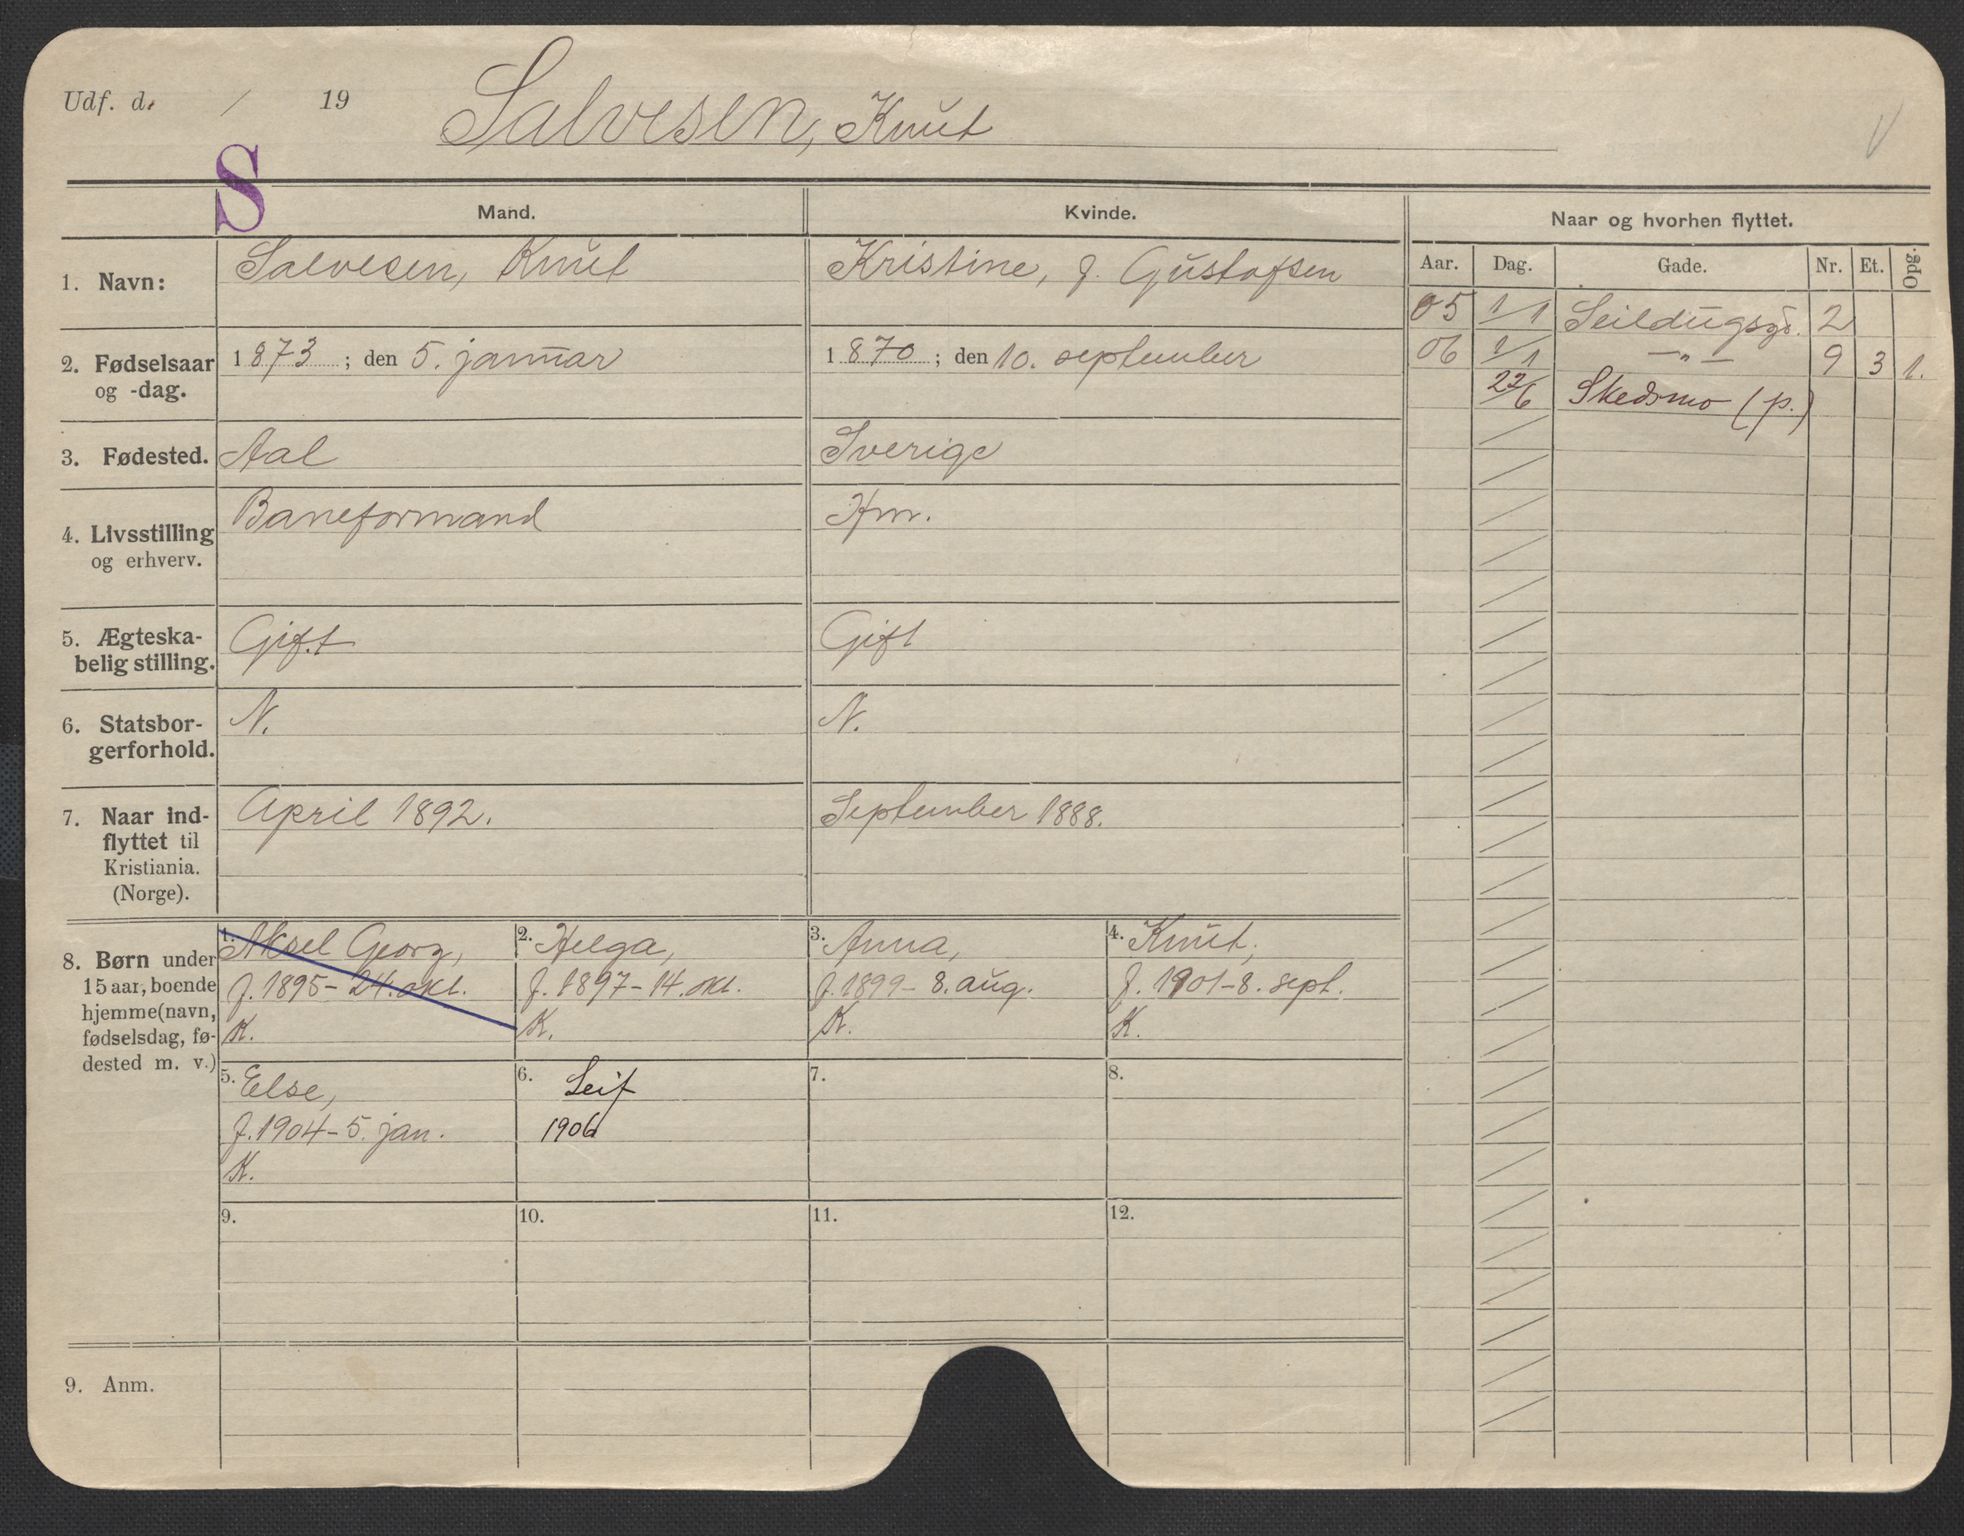 Udf. d. / 19
Salvesen, Knut
V
S
Mand.
Kvinde.
Naar og hvorhen flyttet.
1. Navn:
Salvesen, Knut
Kristine, f. Gustafsen
Aar. Dag. Gade. Nr. Et. Opg.
05 1/1 Seildugsgd. 2
06 1/1 — " — 9 3 1.
22/6 Skedsmo (p.)
2. Fødselsaar
og -dag.
1873 ; den 5. januar
1870 ; den 10. september
3. Fødested.
Aal
Sverige
4. Livsstilling
og erhverv.
Baneformand
Hm.
5. Ægteska-
belig stilling.
Gift
Gift
6. Statsbor-
gerforhold.
N.
N.
7. Naar ind-
flyttet til
Kristiania.
(Norge).
April 1892.
September 1888.
8. Børn under
15 aar, boende
hjemme (navn,
fødselsdag, fø-
dested m. v.)
1. Aksel Georg,
f. 1895 - 24. okt.
K.
2. Helga,
f. 1897 - 14. okt.
K.
3. Anna,
f. 1899 - 8. aug.
K.
4. Knut,
f. 1901 - 8. sept.
K.
5. Else,
f. 1904 - 5. jan.
K.
6. Leif
1906
7.
8.
9.
10.
11.
12.
9. Anm.